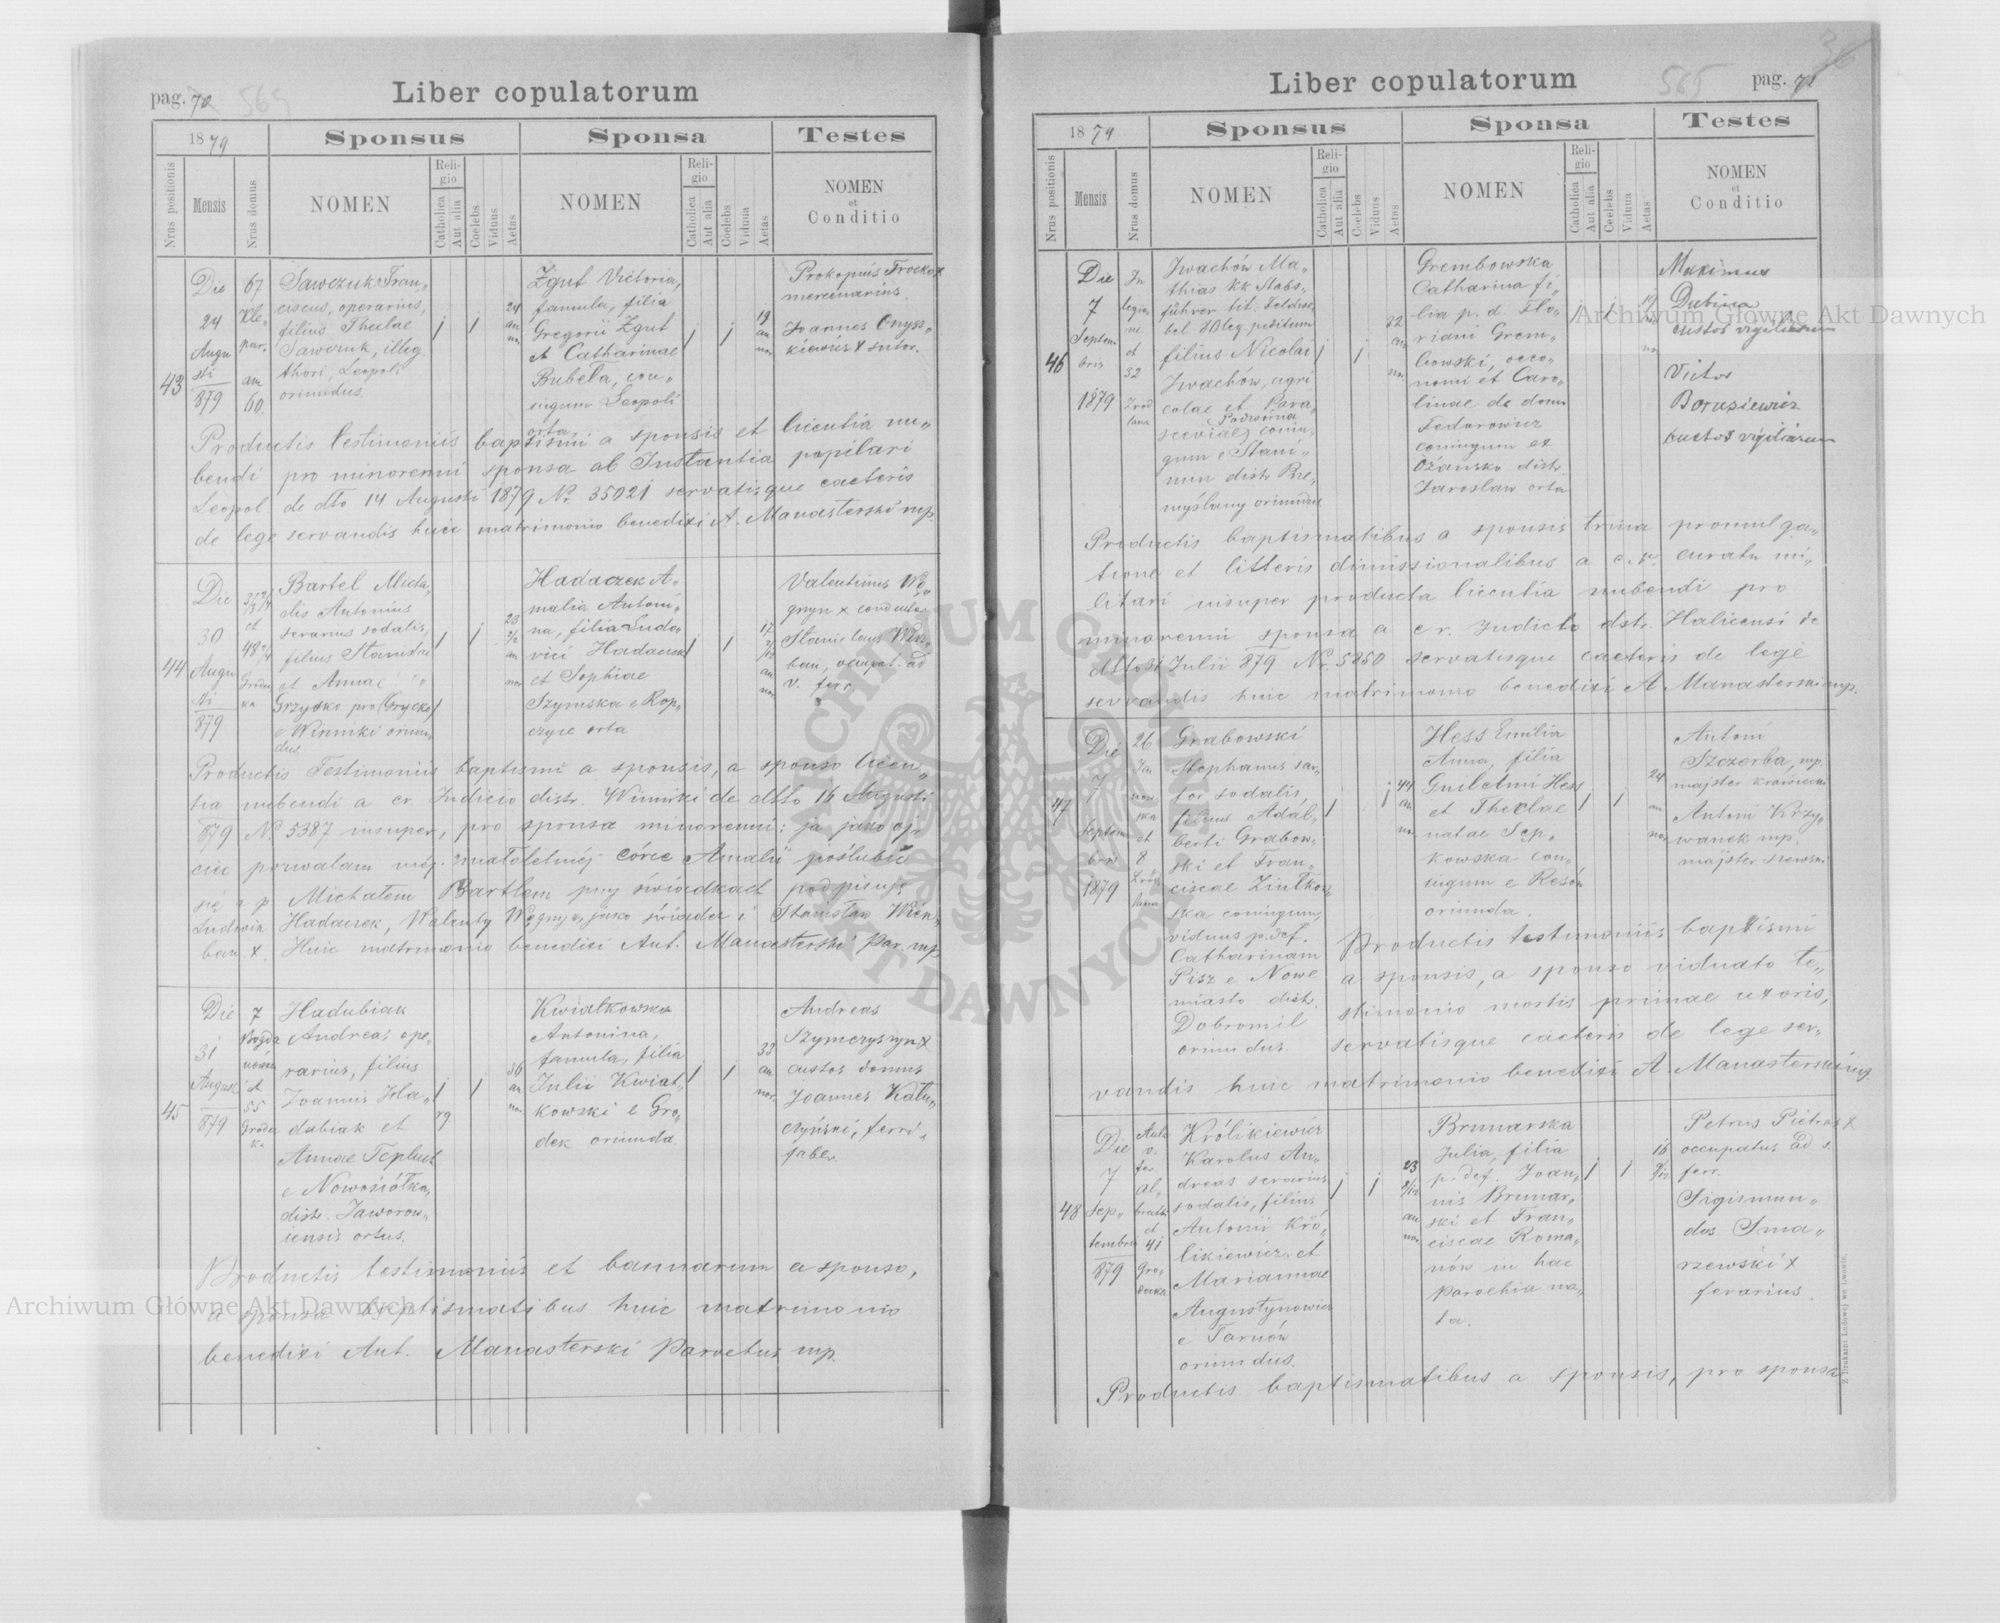 pag. 70
Liber copulatorum
1879
Sponsus
Sponsa
Testes
Nrus positionis
Mensis
Nrus domus
NOMEN
Religio
Catholica
Aut alia
Coelebs
Viduus
Aetas
NOMEN
Religio
Catholica
Aut alia
Coelebs
Vidua
Aetas
NOMEN
et
Conditio
43
Die
24
Augu
sti
879
67
Kle,
par.
am
60.
Sawczuk Fran-
ciscus, operarius,
filius Theclae
Sawczuk, illeg.
thori, Leopoli
oriundus.
24
Zgut Victoria,
famula, filia
Gregorii Zgut
et Catharinae
Bubela, con-
iugum Leopoli
orta
19
Prokopius
mercenarius.
Joannes Onysz-
kiewicz + sutor.
Productis testimoniis baptismi a sponsis et licentia nu-
bendi pro minorenni sponsa ab Instantia pupilari
Leopol. de dto 14 Augusti 1879 Nr. 35021 servatisque caeteris
de lege servandis huic matrimonio benedixi A. Manasterski mp.
44
Die
30
Augu
sti
879
et
Bartel Micha,
elis Antonius
serarius sodalis,
filius Stanislai
et Annae
Grzysko pro (Grycko)
e Winniki oriun,
dus.
Hadaczek A-
malia Antoni-
na, filia Ludo-
vici Hadaczek
et Sophiae
Szymska e Rop-
czyce orta
17
Valentinus Wę-
grzyn x
Stanislaus
ban, occupat. ad
v. ferr.
Productis Testimoniis baptismi a sponsis, a sponso licen,
tia nubendi a cr. Judicio distr. Winniki de dtto 16 Augusti
879 Nr. 5387 insuper, pro sponsa minorenni: ja jako oj-
ciec pozwalam mej małoletniéj córce Amalii poślubić
się z p Michałem Bartlem przy świadkach podpisuję
Ludwik Hadaczek, Walenty Węgrzyn, jako świadek i Stanisław
ban. x. Huic matrimonio benedixi Ant. Manasterski Par. mp
45
Die
31
August
879
7
Bogda
nówka
et
55
Gródec
ka
Hadubiak
Andreas ope-
rarius, filius
Joannis Ha-
dubiak et
Annae Tepluch
e Nowosiółka,
distr. Jaworow-
iensis ortus.
rg
36
Kwiatkowska
Antonina,
famula, filia
Julii Kwiat-
kowski e Gro-
dek oriunda
33
Andreas
Szymczyszyn x
custos domus
Joannes
ferri-
faber.
Productis testimoniis et bannarum a sponso,
a sponsa baptismatibus huic matrimonio
benedixi Ant. Manasterski Parochus mp.
Archiwum Główne Akt Dawnych
36
Liber copulatorum
565
pag. 71
1879
Sponsus
Sponsa
Testes
Nrus positionis
Mensis
Nrus domus
NOMEN
Religio
Catholica
Aut alia
Coelebs
Viduus
Aetas
NOMEN
Religio
Catholica
Aut alia
Coelebs
Vidua
Aetas
NOMEN
et
Conditio
46
Die
7
Septem
bris
1879
In
legio
ne
et
32
Zród
lana
Iwachów Ma-
thias kk Stabs-
führer tit. Feldwe-
bel 80 leg. peditum
filius Nicolai
Iwachów, agri
colae et Para-
sceviae (Podwórna) coniu-
gum e Stani-
min distr. Prze-
myślany oriundus
32
Grembowska
Catharina fi-
lia p. d. Flo-
riani Grem-
bowski, oeco-
nomi et Caro-
linae de domo
Fedorowicz
coniugum ex
Ożansko distr.
Jaroslaw orta
19
Maximus
Dubina
custos vigiliarum
Victor
Borusiewicz
custos vigiliarum
Archiwum Główne Akt Dawnych
Productis baptismatibus a sponsis trina promulga-
tione et litteris dimissionalibus a c. r. curatu mi-
litari insuper producta licentia nubendi pro
minorenni sponsa a cr. Judicto dstr. Halicensi de
Julii 879 Nr. 5850 servatisque caeteris de lege
servandis huic matrimonio benedixi A Manasterski mp.
47
Die
7
Septem
bris
1879
26
Jan
ows
ka
et
8
Źród
lana
Grabowski
Stephanus sar-
tor sodalis
filius Adal-
berti Grabow-
ski et Fran-
ciscae Ziułkow-
ska coniugum,
viduus p. def.
Catharinam
Pisz e Nowe
miasto distr.
Dobromil
oriundus.
44
Hess Emilia
Anna, filia
Guilelmi Hess
et Theclae
natae Sep-
kowska con-
iugum e Resów
oriunda.
24
Antoni
Szczerba, mp.
majster krawiecki
Antoni Krzy-
wanek mp.
majster szewski
Productis testimoniis baptismi
a sponsis, a sponso viduato te-
stimonio mortis primae uxoris,
servatisque caeteris de lege ser-
vandis huic matrimonio benedixi A. Manasterski mp.
48
Die
7
Sep-
tembris
879
et
41
Gro-
decka
Królikiewicz
Karolus An-
dreas serarius
sodalis, filius
Antonii Kró-
likiewicz et
Mariannae
Augustynowicz
e Tarnów
oriundus.
23
Brunarska
Julia, filia
p. def. Joan-
nis Brunar-
ski et Fran-
ciscae Roma-
nów in hac
parochia na-
ta.
16
Petrus Pietras x
occupatus ad s.
ferr.
Sigismun-
dus Sma-
rzewski x
ferarius.
Productis baptismatibus a sponsis, pro sponsa
Z Drukarni Ludowej we Lwowie.
ARCHIWUM GŁÓWNE AKT DAWNYCH